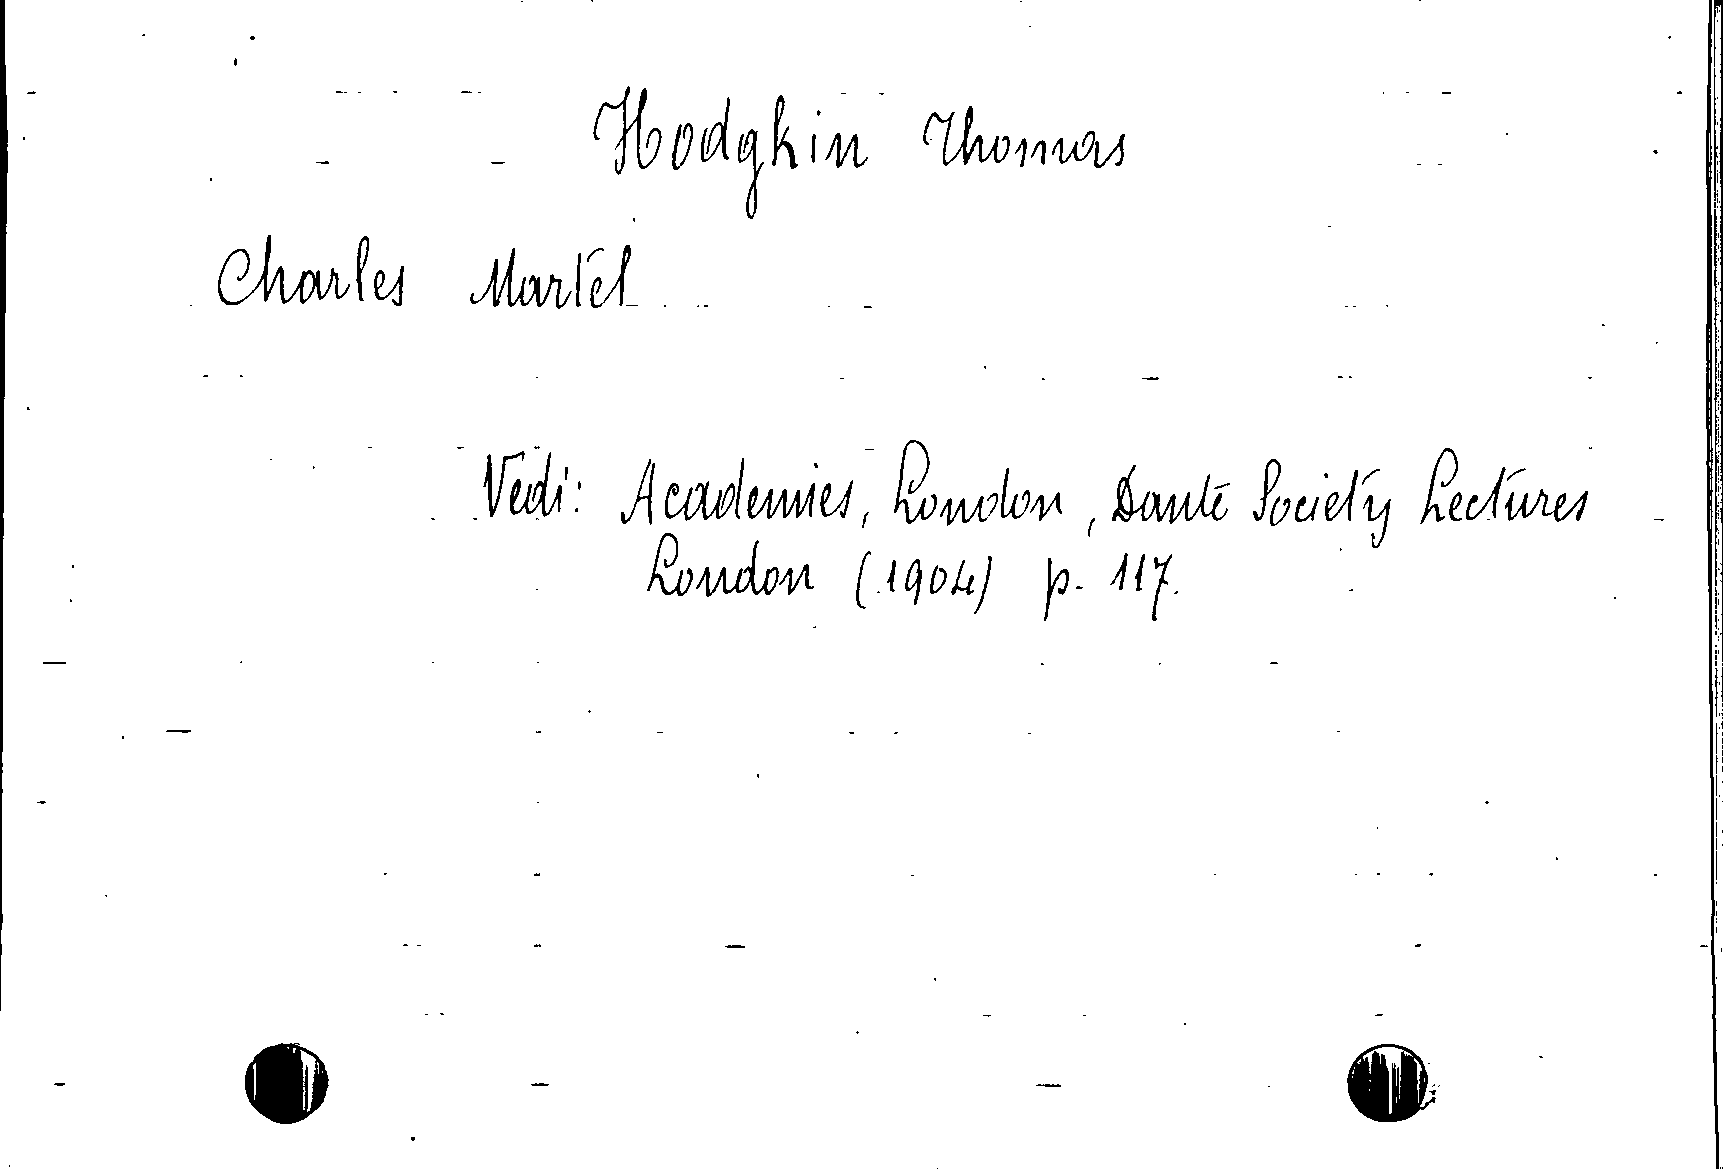 Hodgkin Thomas
Charles Martel
Vedi: Academies, London, Dante Society Lectures
London (1904) p. 117.